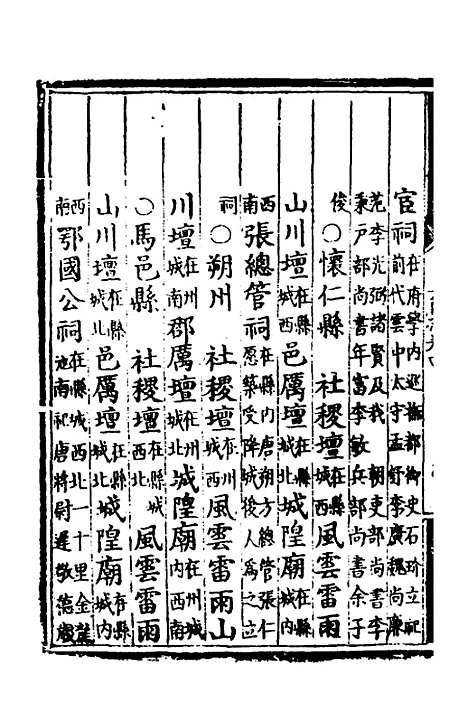 宦祠在府學內巡撫都御史石玠立祀前代雲中太守孟舒李廣魏尚廉
范李光弼諸賢及我朝吏部尚書李秉戶部尚書年富李敏兵部尚書余子
俊○懷仁縣 社稷壇在縣城西風雲雷雨
山川壇在縣城西邑厲壇在縣城北城隍廟在縣城內
西南張總管祠在縣內唐朔方總管張仁愿築受降城後人為之立
祠○朔州 社稷壇在州城西風雲雷雨山
川壇在州城南郡厲壇在州城北城隍廟在州城內西南
○馬邑縣 社稷壇在縣城西北風雲雷雨
山川壇在縣城北邑厲壇在縣城北城隍廟在縣城內
西南鄂國公祠在縣城西北一十里金龍池南祀唐將尉遲敬德歲